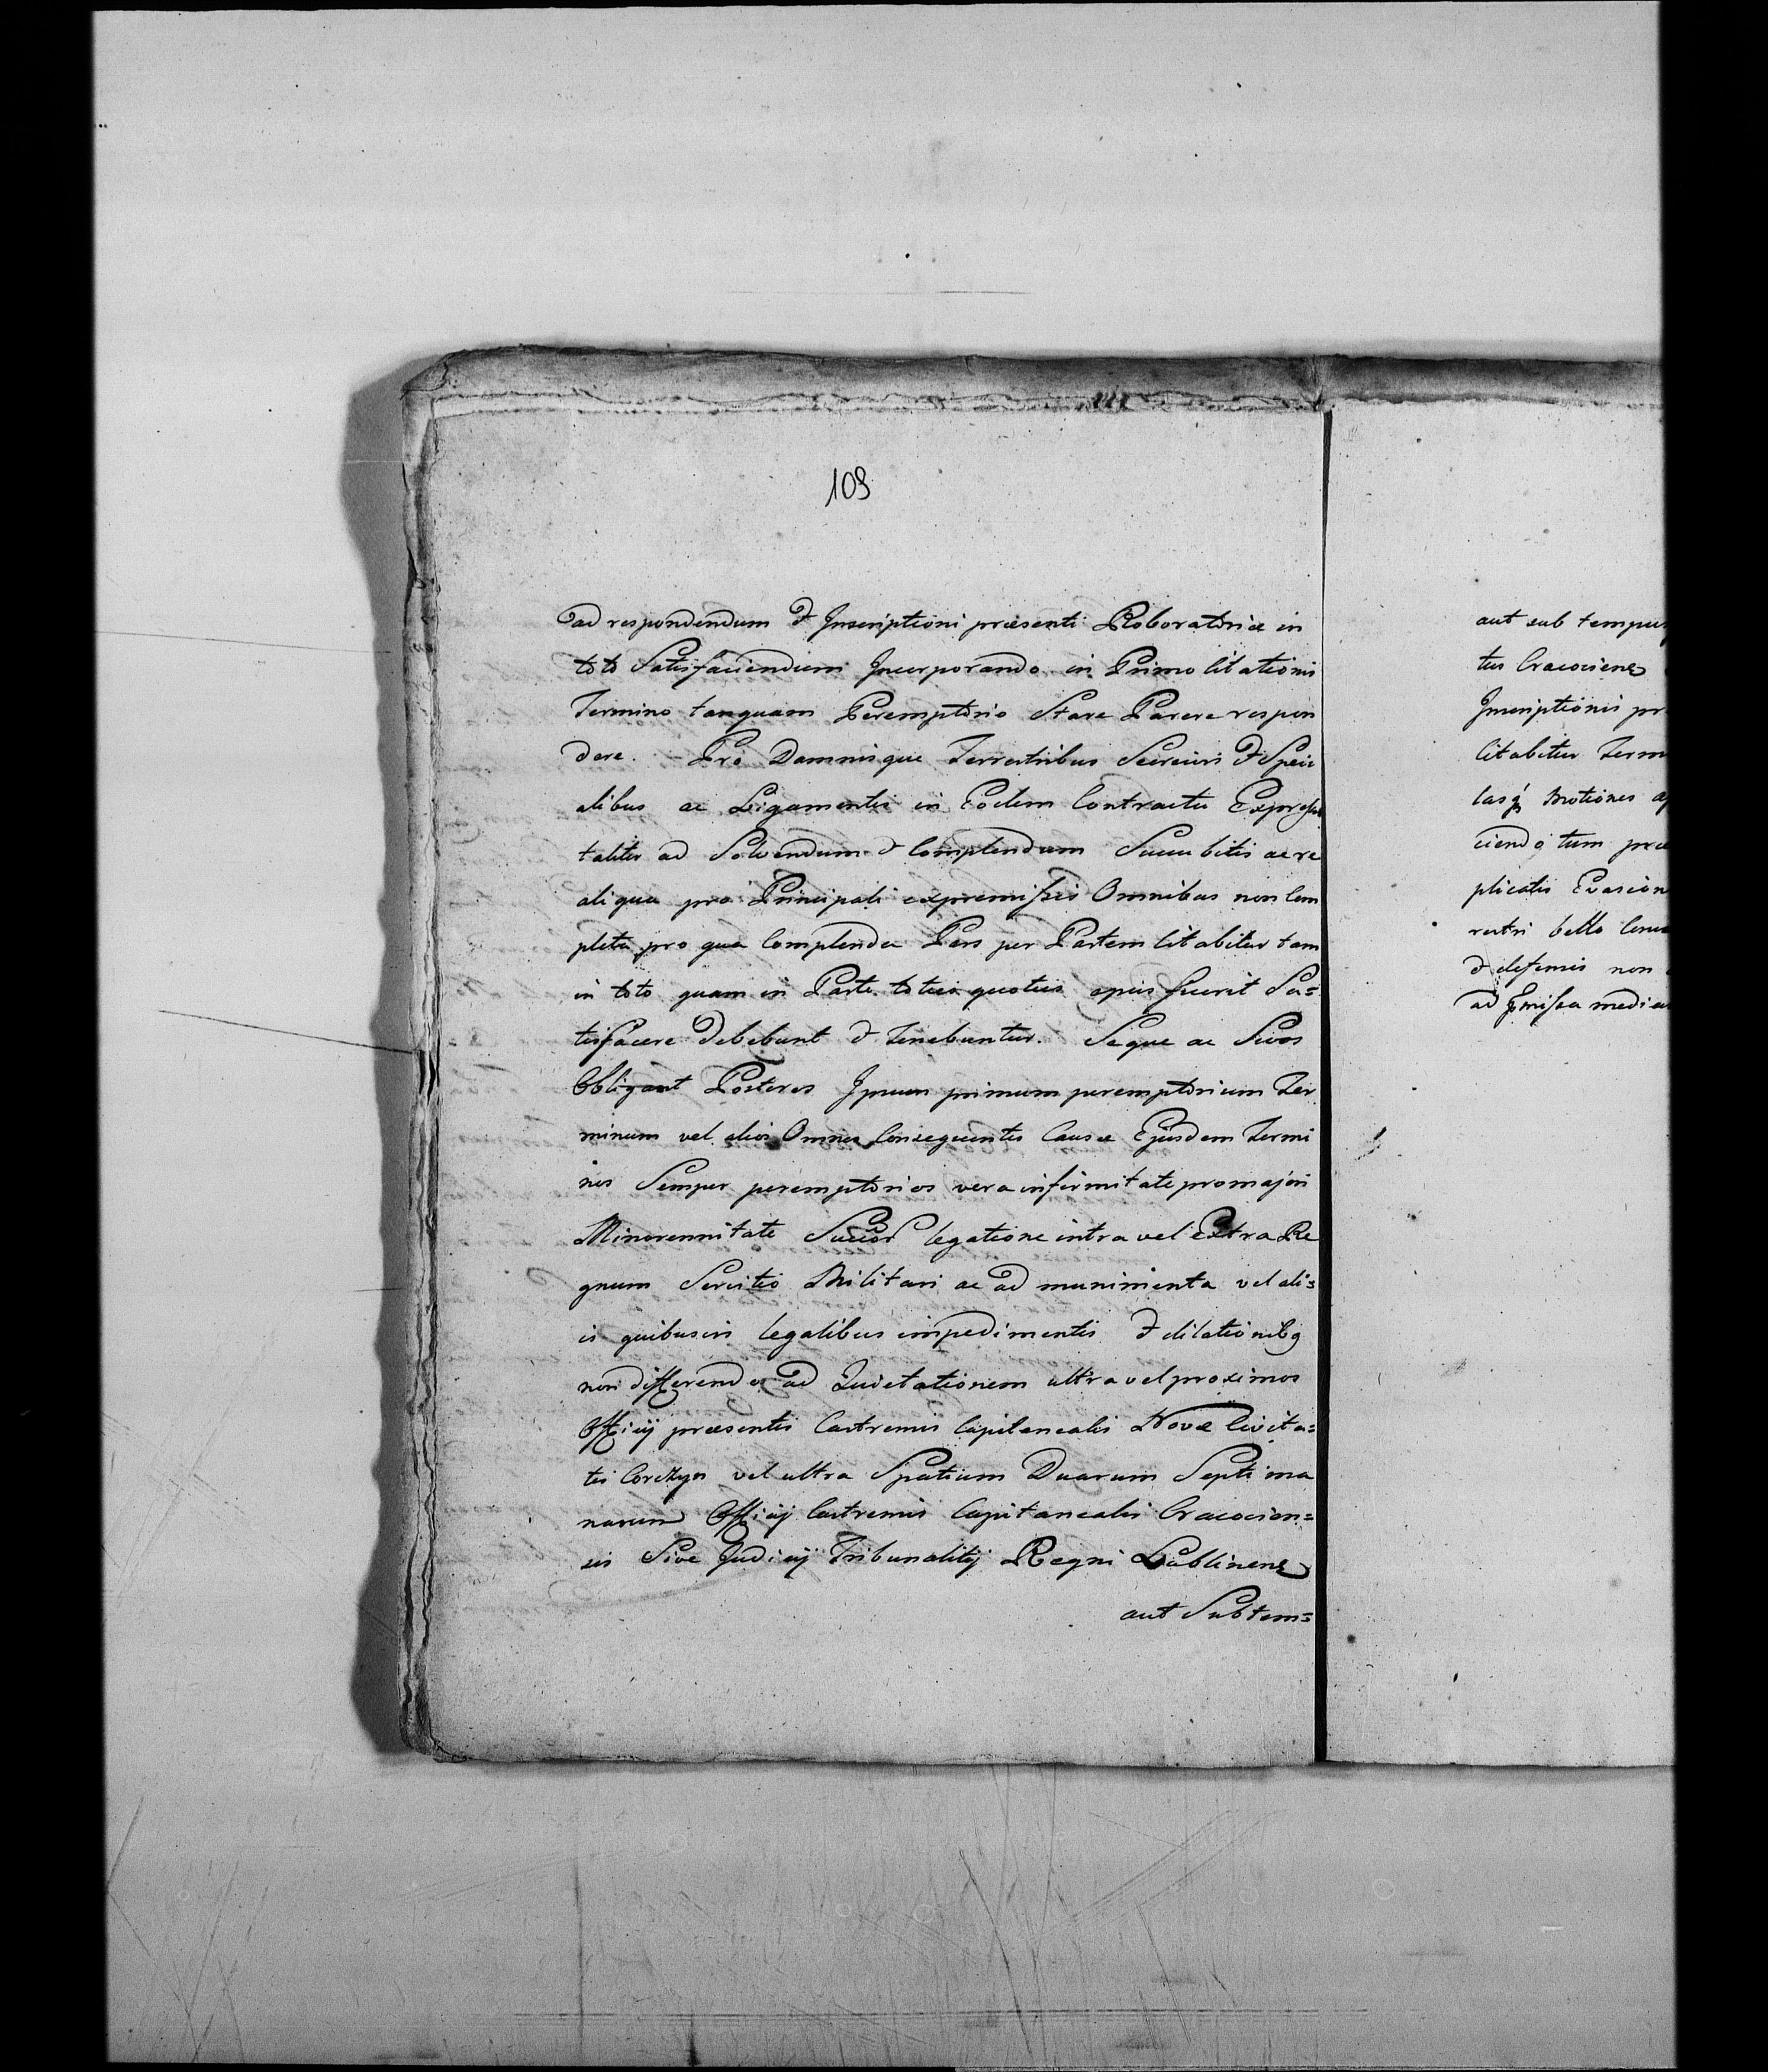 109
ad respondendum & Inscriptioni præsenti Roboratoriæ in
toto Satisfaciendum Incorporando in Primo Citationis
Termino tanquam Peremptorio Stare Parere respon
dere. Pro Damnisque Terrestribus Succisivis & Speci
alibus ac Ligamentis in Eodem Contractu Expressis
taliter ad Solvendum & Complendum Succubitis ac re
aliqua pro Principali expremissis Omnibus non Com
pleta pro qua Complenda Pars per Partem Citabitur tam
in toto quam in Parte toties quoties opus fuerit Sa=
tisfacere debebunt & Tenebuntur. Seque ac Suos
Obligant Posteros Ipsum primum peremptorium Ter
minum vel alios Omnes Consequentes Causæ Ejusdem Termi
nos Semper peremptorios vera infirmitate pro majori
Minorennitate Succor legatione intra vel Extra Re
gnum Servitio Militari ac ad munimenta vel ali=
is quibusvis legalibus impedimentis & dilationibq
non differendos ad Quietationem ultra vel proximos
Officij præsentis Castrensis Capitanealis Novæ Civita=
tis Corczyn vel ultra Spatium Duarum Septima
narum Officij Castrensis Capitanealis Cracovien=
sis Sive Judicij Tribunalitij Regni Lublinens
aut Subtem=
aut sub tempus
tus Cracoviens
Inscriptionis pr
Citabitur Term
lasq motiones
ciendo tum præ
plicatis Evasion
restri bello
& defensis non
ad præmissa media